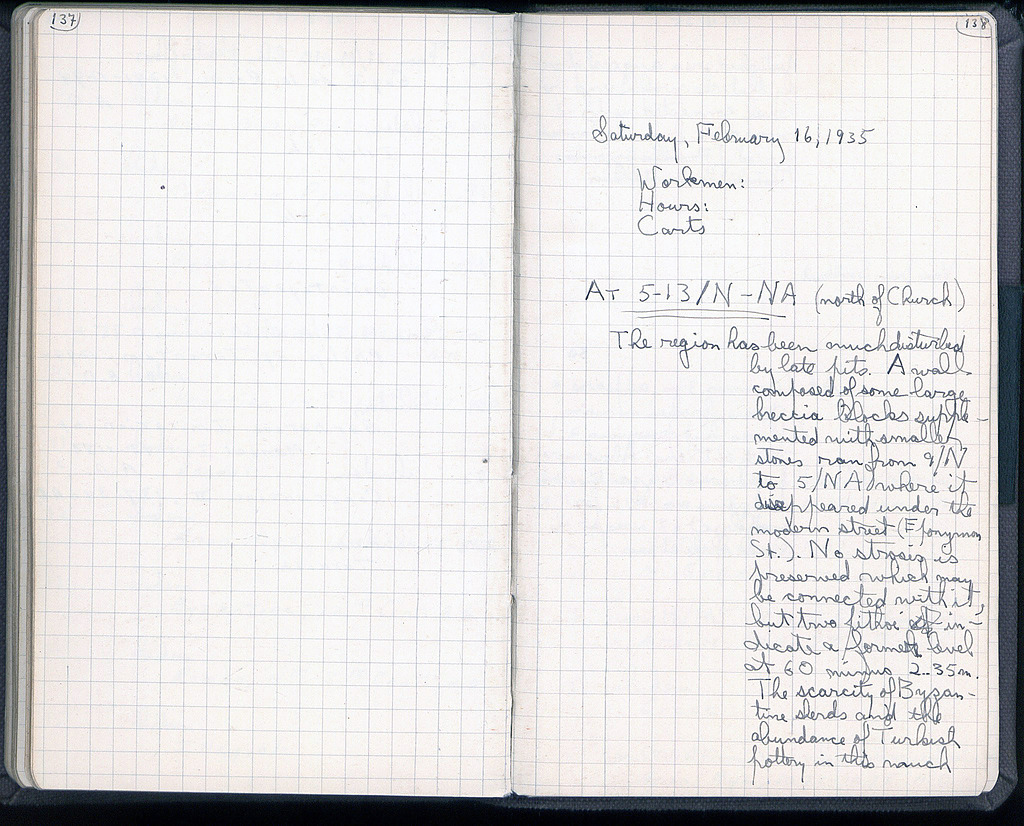 137
138
Saturday, February 16, 1935
Workmen:
Hours:
Carts
AT 5-13/N-NA (north of Church)
The region has been much disturbed
by late pits. A wall
composed of some large
breccia blocks supple-
mented with smaller
stones ran from 9/N
to 5/NA where it
disappeared under the
modern street (Eponymon
St.). No strosis is
preserved which may
be connected with it,
but two pithoi in-
dicate a former level
at 60 minus 2.35m.
The scarcity of Byzan-
tine sherds and the
abundance of Turkish
pottery in this much